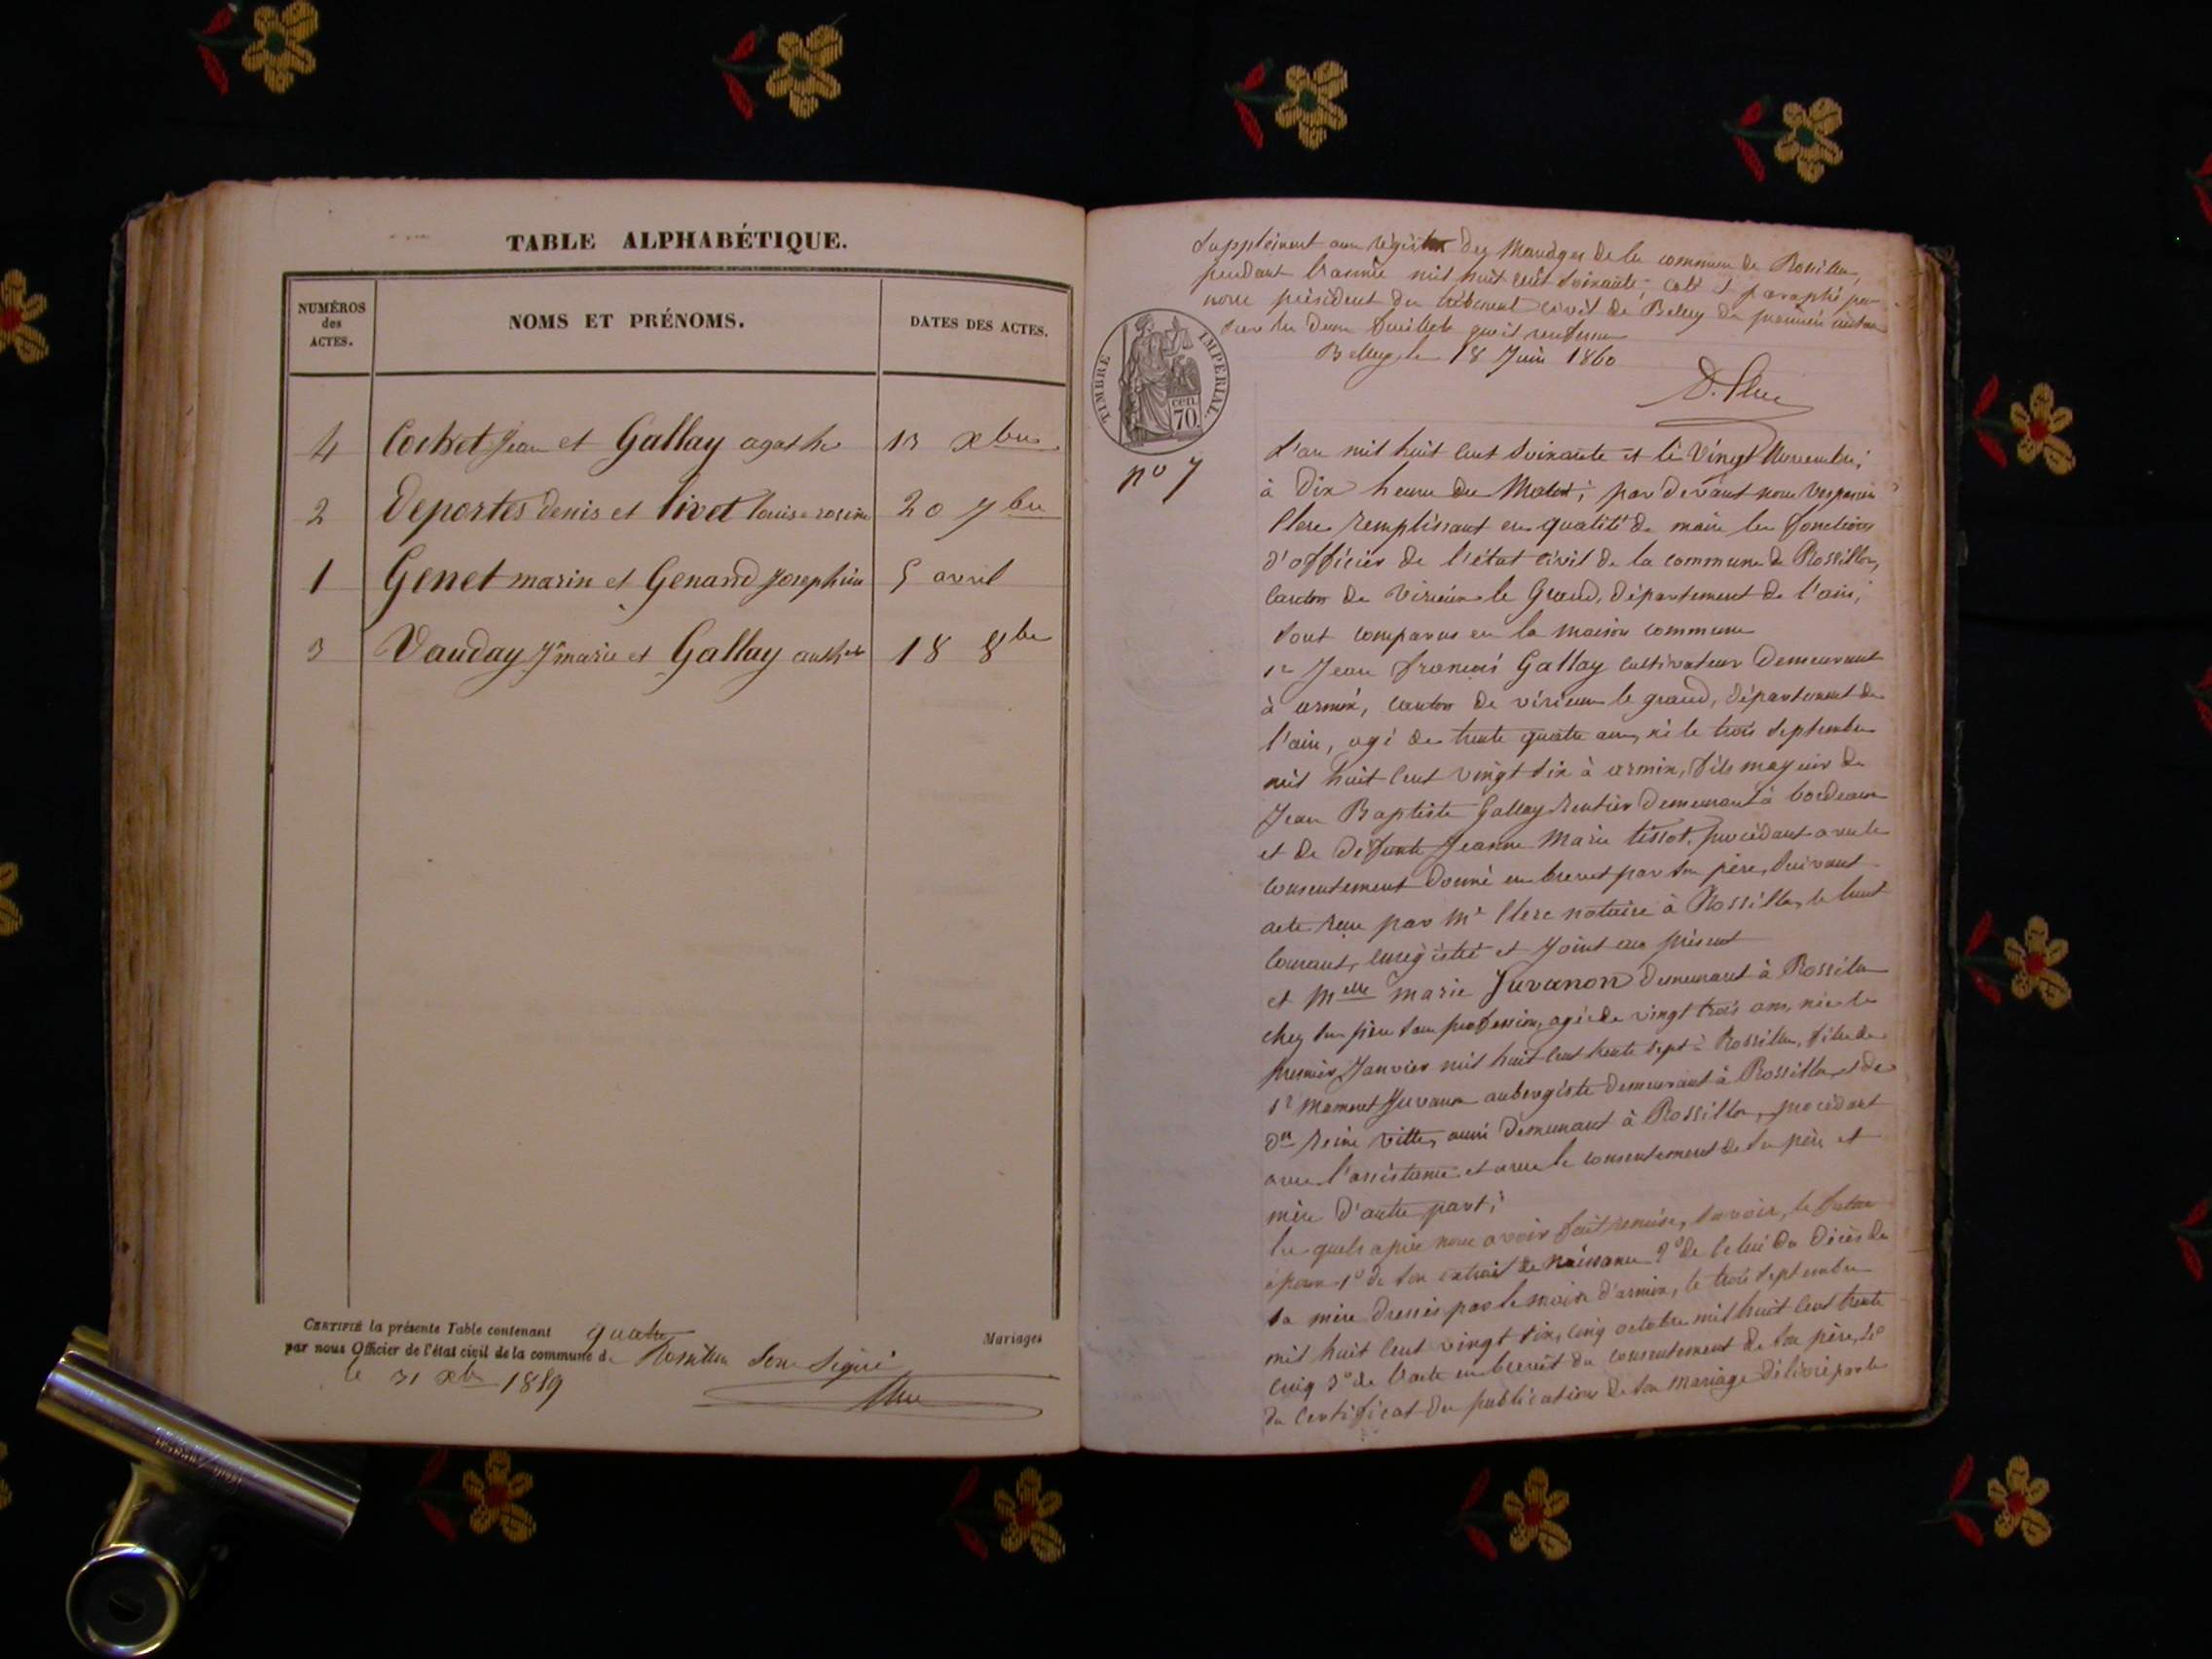 TABLE ALPHABÉTIQUE.
NUMÉROS
des
ACTES.
NOMS ET PRÉNOMS.
DATES DES ACTES.
4 Cochet Jean et Gallay agathe 13 xbre
2 Deportes denis et livet louise rosine 20 7bre
1 Genet marin et Genand Josephine 5 avril
3 Vauday jh marie et Gallay anthte 18 8bre
CERTIFIÉ la présente Table contenant quatre Mariages
par nous Officier de l'état civil de la commune de Rossillon Soussigné
le 31 xbre 1859
Clerc
Supplément au registre des Mariages de la commune de Rossillon,
pendant l'année mil huit cent soixante, coté et paraphé par
nous président du tribunal civil de Belley du premier au
sur les deux feuillets qu'il renferme
Belley le 18 Juin 1860
TIMBRE IMPÉRIAL.
70 cen.
no 7
L'an mil huit cent soixante et le vingt Novembre,
à Dix heure du Matin; par devant nous Vespasien
Clerc remplissant en qualité de maire les fonctions
d'officier de l'état civil de la commune de Rossillon,
canton de Virieu le Grand, département de l'ain,
sont comparus en la maison commune
sr Jean francois Gallay cultivateur Demeurant
à armix, canton de virieu le grand, département de
l'ain, agé de trente quatre ans, né le trois septembre
mil huit cent vingt six à armix, fils majeur de
Jean Baptiste Gallay rentier demeurant à bordeaux
et de défunte Jeanne Marie tissot, procédant avec le
consentement donné en brevet par son père, suivant
acte reçu par Me Clerc notaire à Rossillon, le huit
courant, enregistré et joint au présent
et Melle marie Juvanon demeurant à Rossillon
chez son père sans profession, agée de vingt trois ans, née le
premier Janvier mil huit cent trente sept à Rossillon, fille de
sr Mamert Juvanon aubergiste demeurant à Rossillon et de
dme reine vittet, aussi demeurant à Rossillon, procédant
avec l'assistance et avec le consentement de son père et
mère d'autre part;
les quels après nous avoir fait remise, savoir, le futur
époux 1o de son extrait de naissance 2o de celui du décès de
sa mère dressés par le maire d'armix, le trois septembre
mil huit cent vingt six, cinq octobre mil huit cent trente
cinq 3o de l'acte en brevet du consentement de son père, 4o
du certificat de publication de son mariage délivré par le